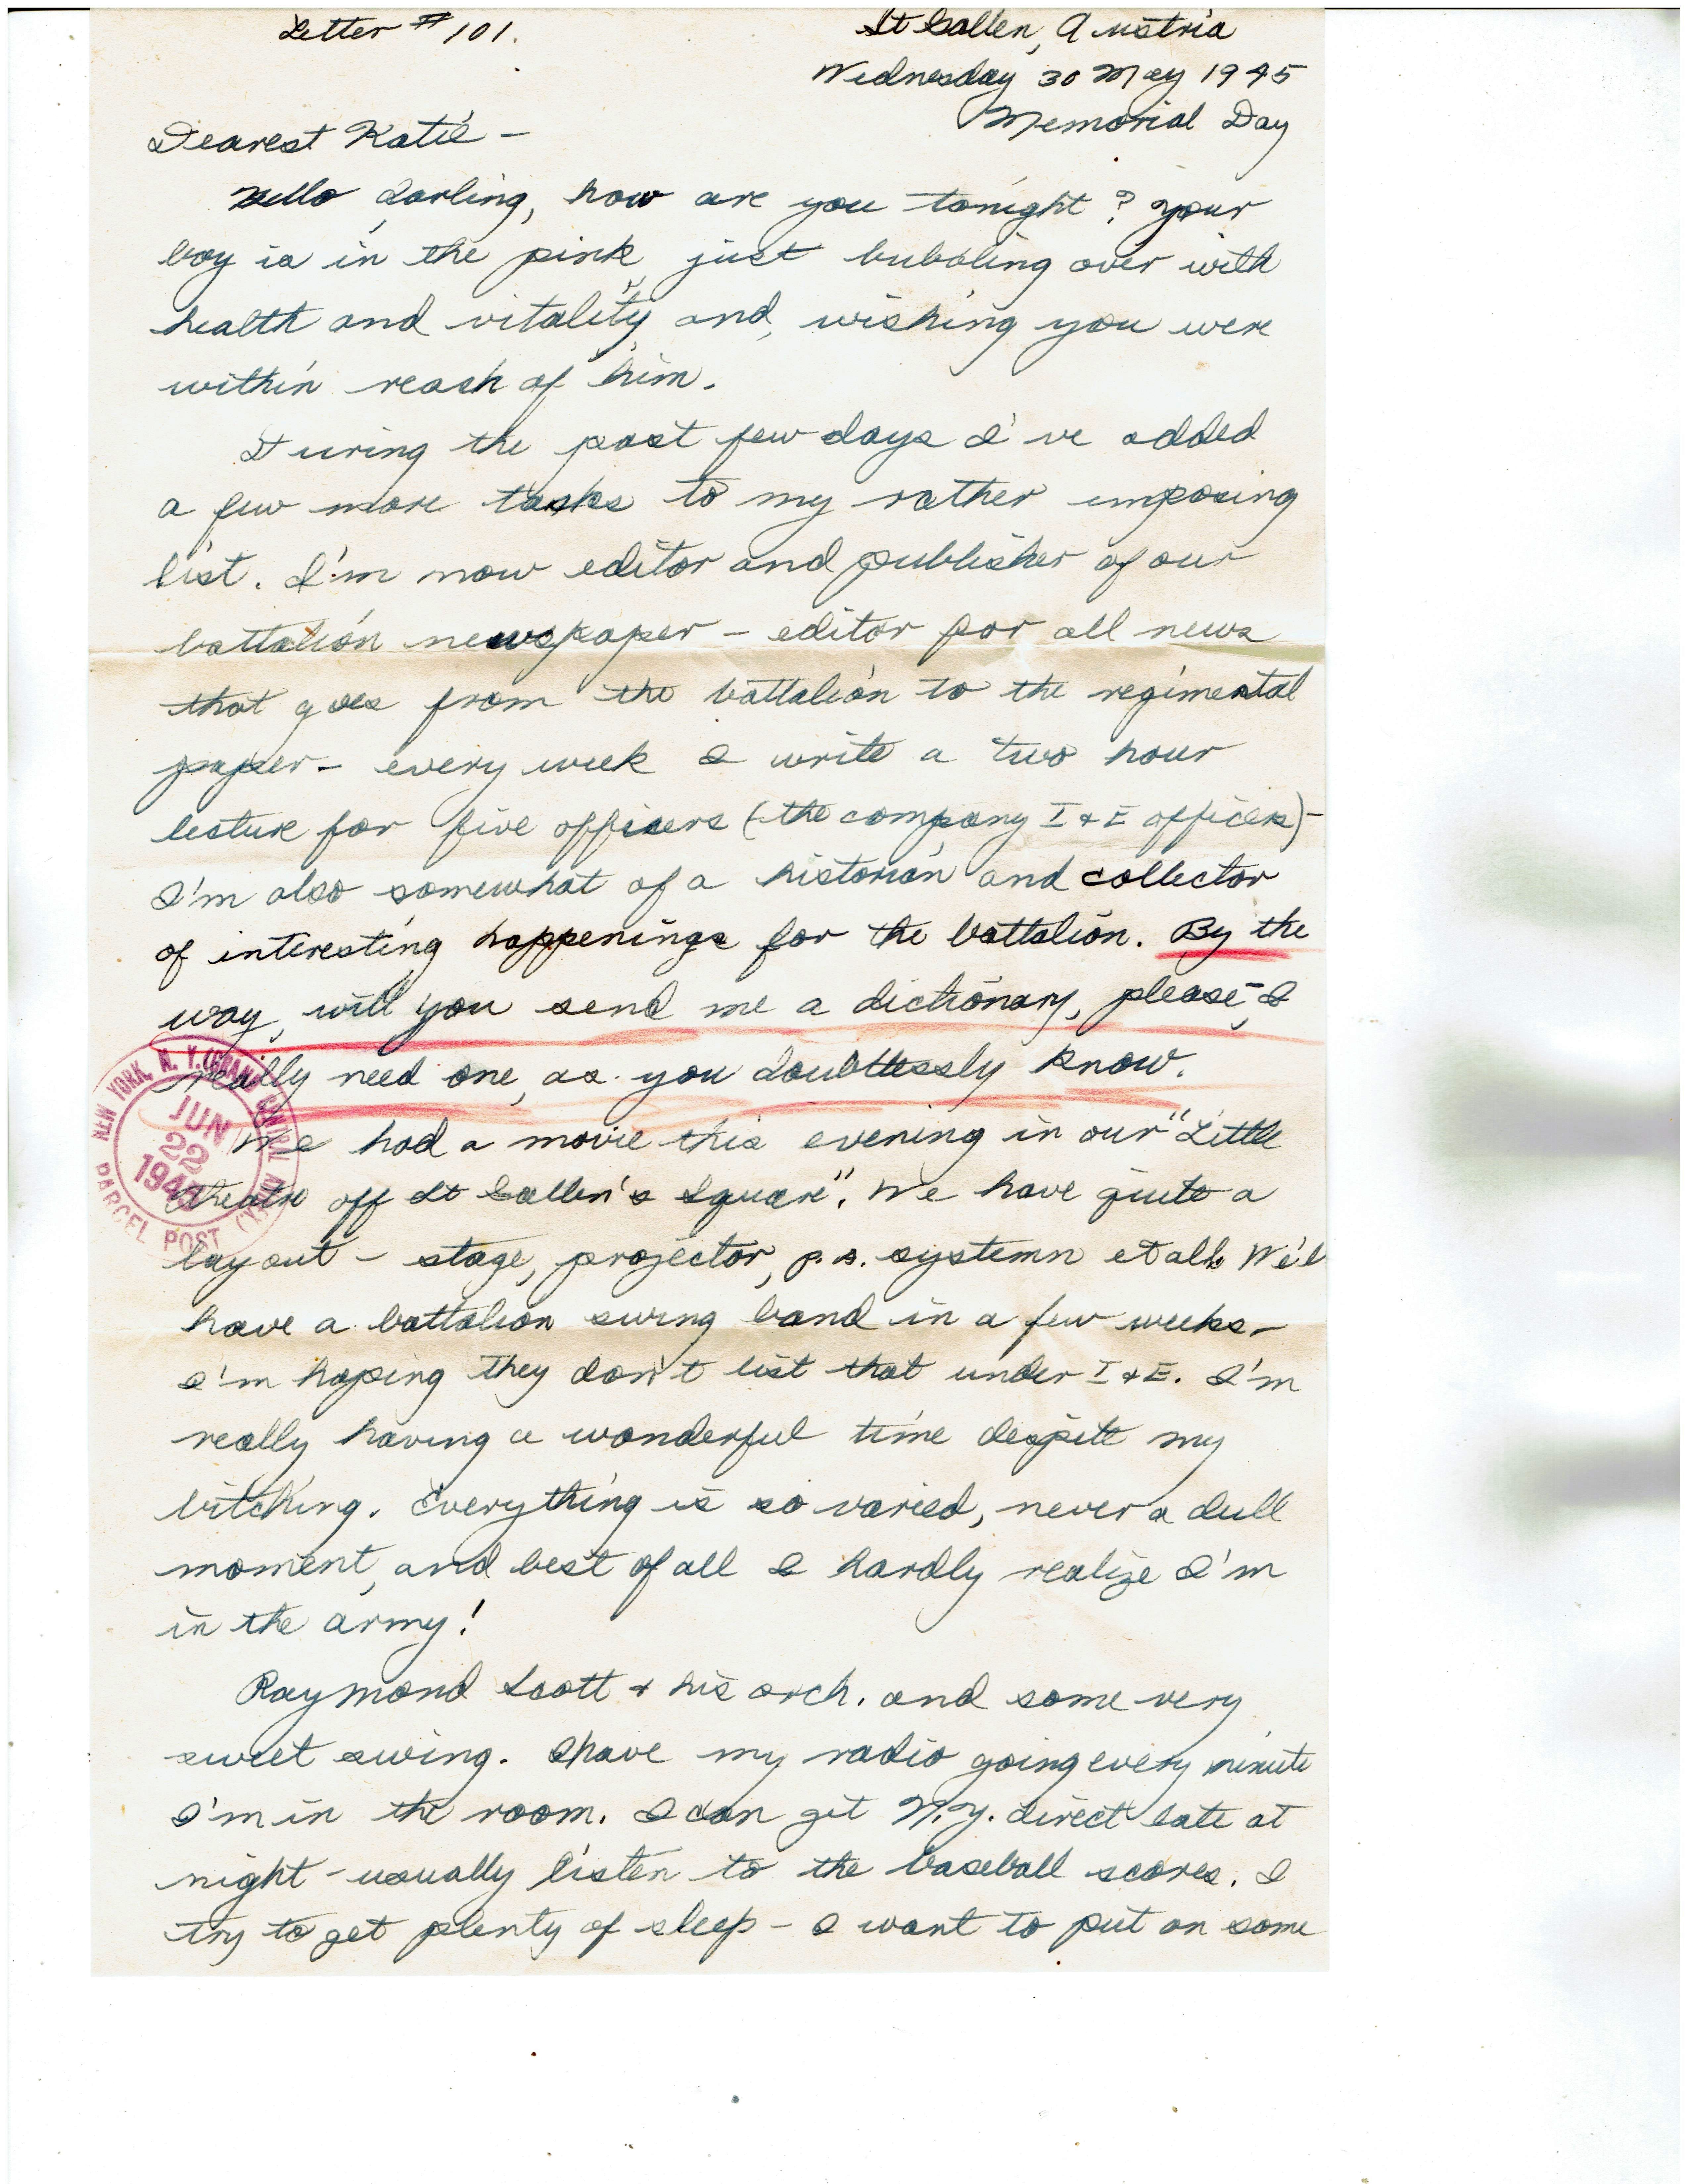 Letter #101.
St Gallen, Austria
Wednesday 30 May 1945
Memorial Day
Dearest Katie -
Hello darling, how are you tonight? Your
boy is in the pink, just bubbling over with
health and vitality and, wishing you were
within reach of him.
During the past few days I've added
a few more tasks to my rather imposing
list. I'm now editor and publisher of our
battalion newspaper - editor for all news
that goes from the battalion to the regimental
paper - every week I write a two hour
lecture for five officers (the company I & E officers) -
I'm also somewhat of a historian and collector
of interesting happenings for the battalion. By the
way, will you send me a dictionary, please, I
really need one, as you doubtlessly know.
We had a movie this evening in our "Little
theatre off St Gallen's Square". We have quite a
layout - stage, projector, p.a. systemn et all. We'll
have a battalion swing band in a few weeks -
I'm hoping they don't list that under I & E. I'm
really having a wonderful time despite my
bitching. Everything is so varied, never a dull
moment, and best of all I hardly realize I'm
in the army!
Raymond Scott & his orch. and some very
sweet swing. I have my radio going every minute
I'm in the room. I can get N.Y. direct late at
night - usually listen to the baseball scores. I
try to get plenty of sleep - I want to put on some
NEW YORK, N.Y.
JUN
22
1945
PARCEL POST